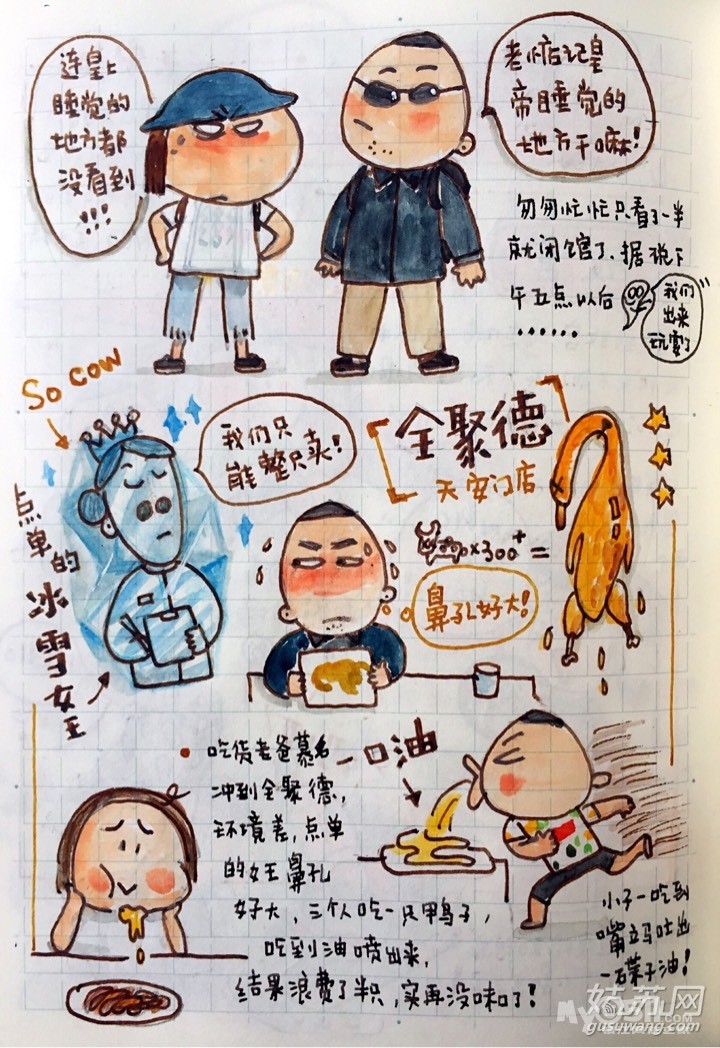 连皇上
睡觉的
地方都
没看到
!!!
老惦记皇
帝睡觉的
地方干嘛!
匆匆忙忙只看了一半
就闭馆了、据说下
午五点以后
......
我们
出来
玩耍了
So cow
我们只
能整只卖!
全聚德
天安门店
点单的
冰雪女王
×300+ =
鼻孔好大!
吃货老爸慕名
冲到全聚德,
环境差,点单
的女王鼻孔
好大,三个人吃一只鸭子,
吃到油喷出来,
结果浪费了半只,实再没味口了!
一口油
小子一吃到
嘴立马吐出
一碟子油!
姑苏网
gusuwang.com